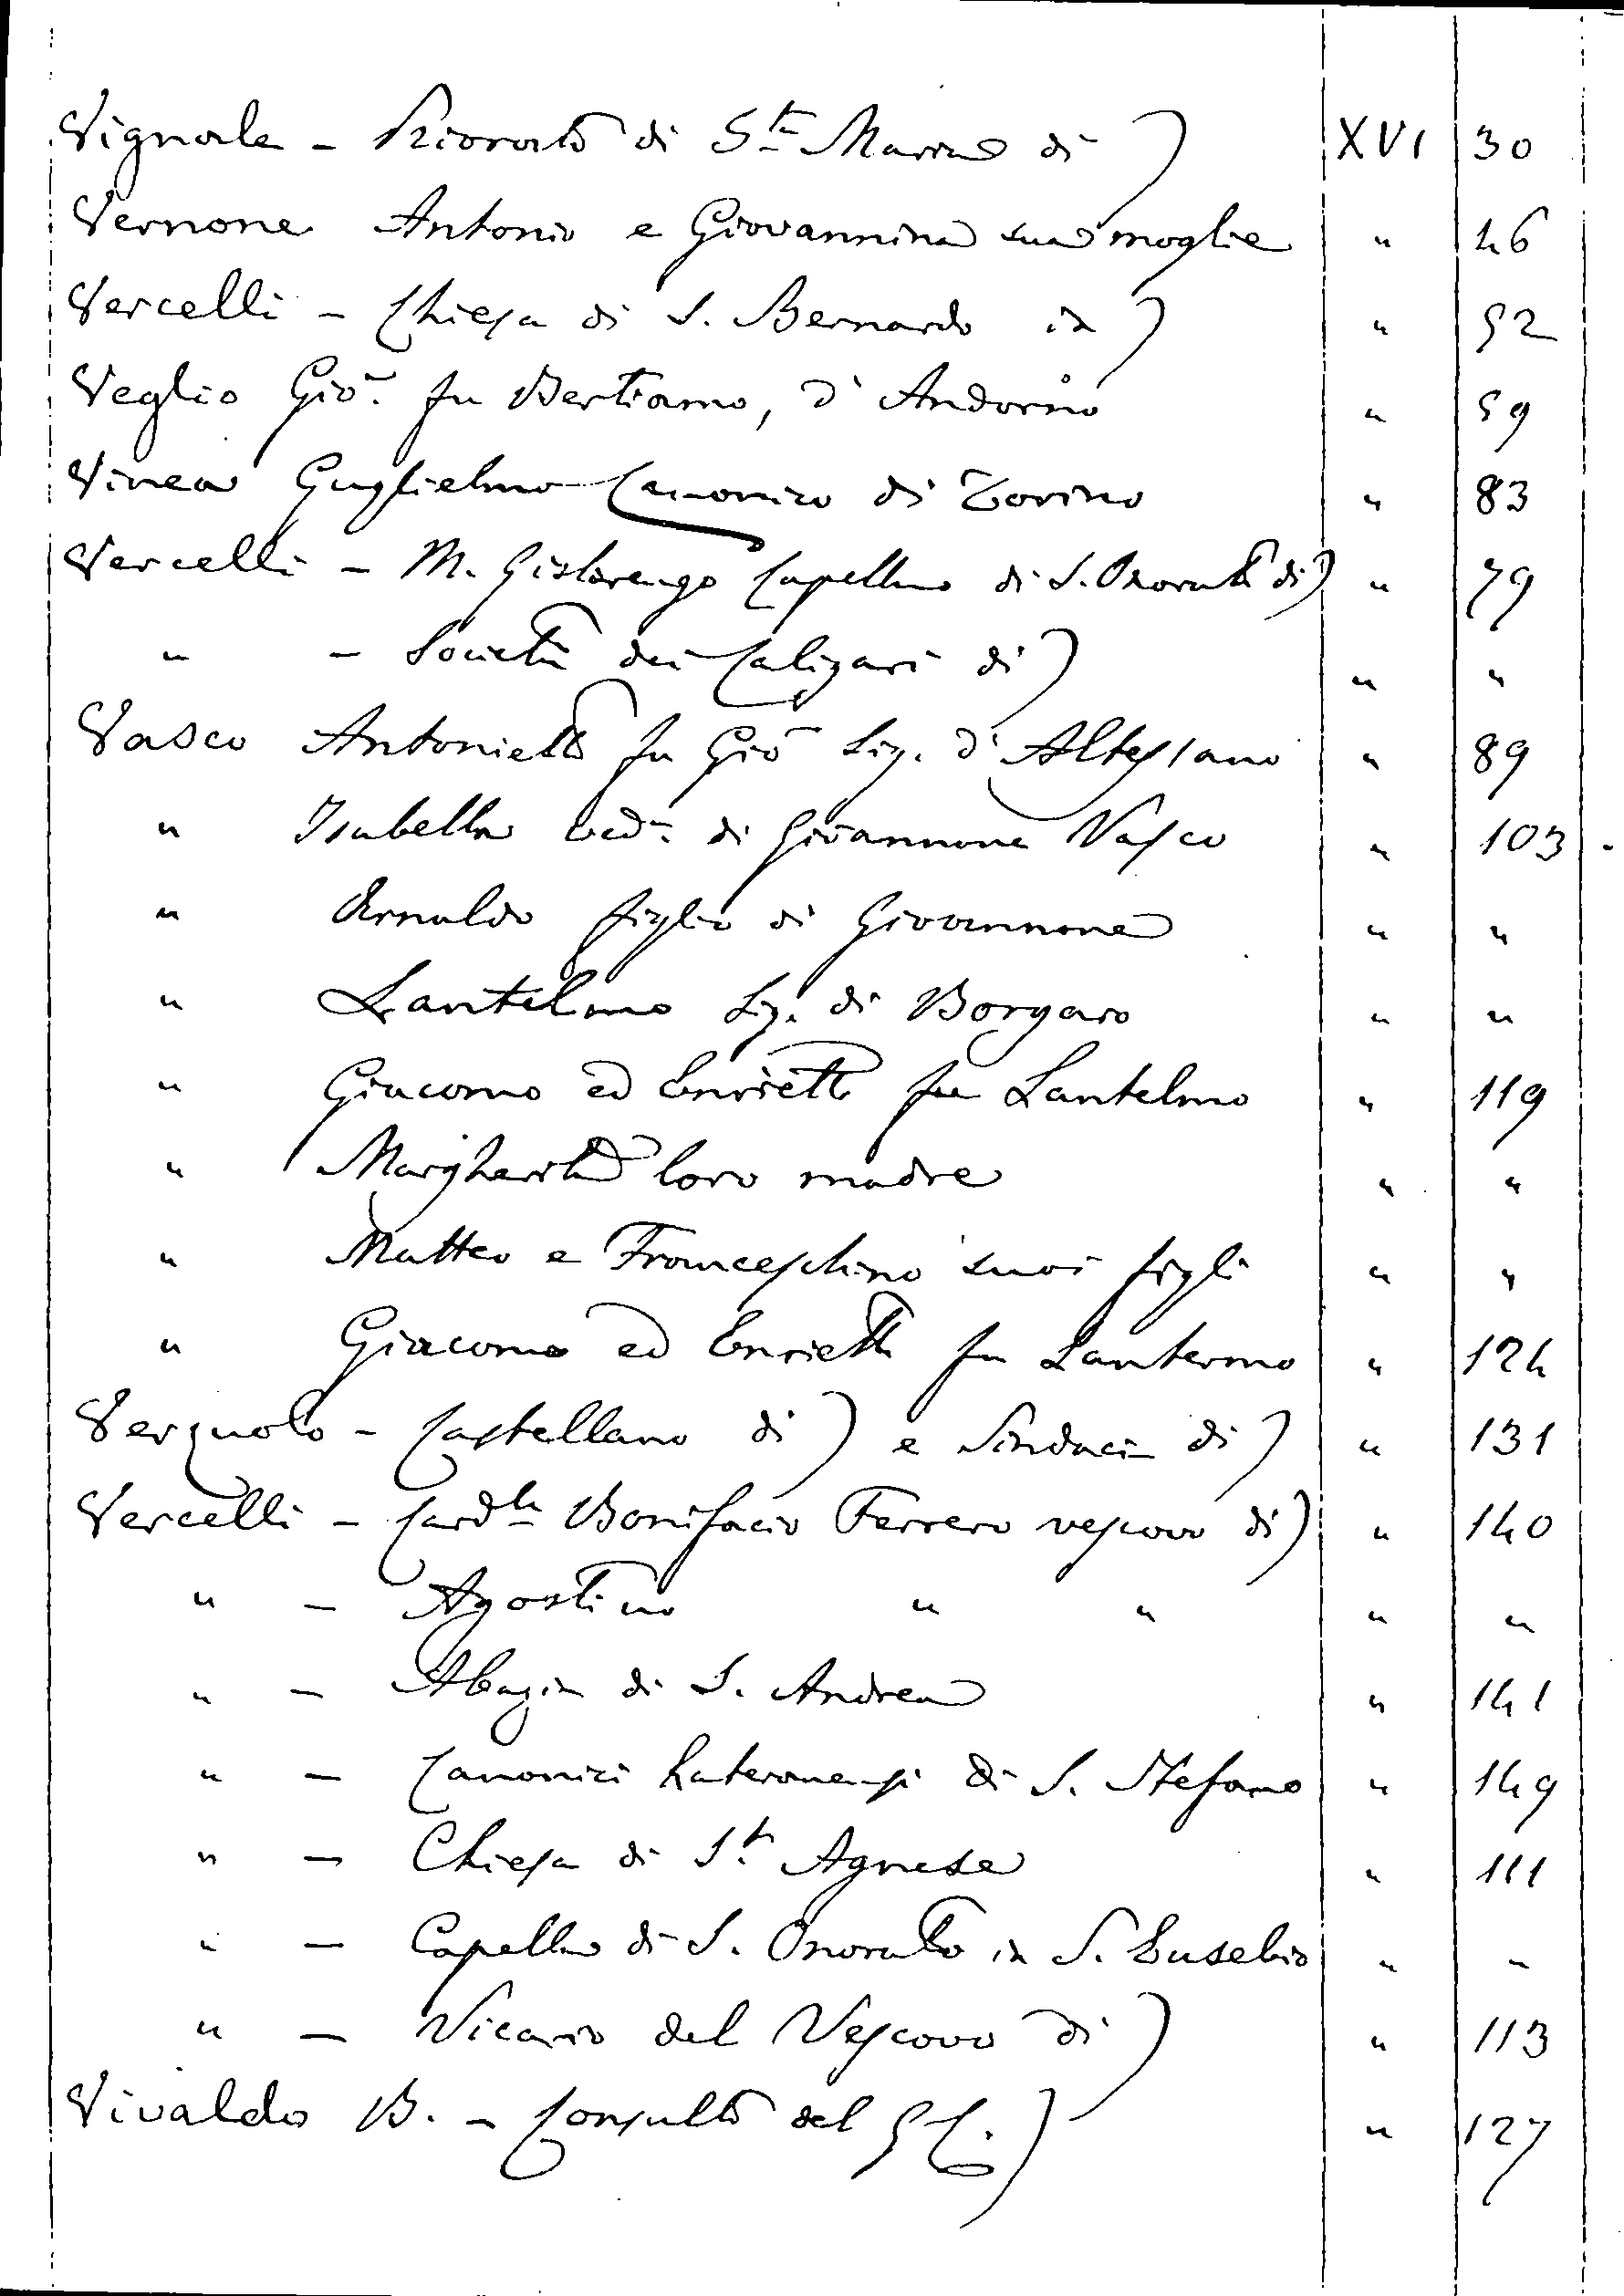 Vignale - Priorato di Sta Maria di) XVI 30
Vernone Antonio e Giovannina sua moglie " 46
Vercelli - Chiesa di S. Bernardo in) " 52
Veglio Gio. fu Bertramo, d'Andorno " 59
Vinea Guglielmo Canonico di Torino " 83
Vercelli - M. Gislarengo Capella di S. Onorato di) " 79
" - Società dei Caligari di) " "
Vasco Antonietto fu Gio Sig. d'Altessano " 89
" Isabella ved. di Giovannone Vasco " 103
" Arnaldo figlio di Giovannone " "
" Lantelmo Sig. di Borgaro " "
" Giacomo ed Enrietto fu Lantelmo " 119
" Margherita loro madre " "
" Matteo e Franceschino suoi figli " "
" Giacomo ed Enrietto fu Lantermo " 124
Verzuolo - Castellano di) e Sindaci di) " 131
Vercelli - Cardle Bonifacio Ferrero vescovo di) " 140
" - Agostino " " " "
" - Abazia di S. Andrea " 141
" - Canonici Lateranensi di S. Stefano " 149
" - Chiesa di Sta Agnese " 111
" - Capella di S. Onorato in S. Eusebio " "
" - Vicario del Vescovo di) " 113
Vivaldo B. - Consulto del) " 127